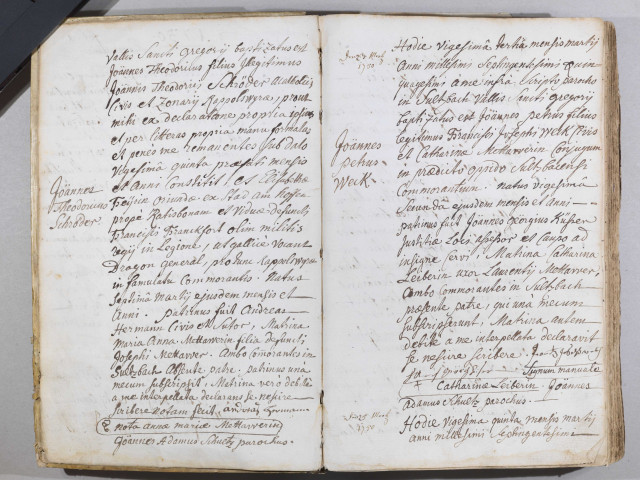 Vallis Sancti Gregorij baptizatus est
Joannes Theodorus filius illegitimus
Joannis Theodori Schröder Acatholici
Civis et Zonarij Rappolswyræ, prout
mihi ex declaratione propria ipsius
et per litteras propria manu formatas
et penes me remanentes sub dato
vigesima quinta præfati mensis
et Anni Constitit, et Elisabetha
oriunda ex Stad am Hoffen
prope Ratisbonam et viduæ defuncti
Francisci Franckfort olim militis
in Legione, ut gallice vocant
Dragon general, pro tunc Rappolswyræ
in famulatu Commorantis. Natus
Septima Martij ejusdem mensis et
Anni. patrinus fuit Andreas
Hermann Civis et Sutor, Matrina
Maria Anna Mettawerin filia defuncti
Josephi Mettawer. Ambo Comorantes in
Sultzbach Absente patre. patrinus una
mecum subscripsit, Matrina vero debite
a me interpellata declarans se nescire
scribere notam fecit.
nota annæ mariæ Mettawerin
Joannes Adamus Schultz parochus.
Joannes
Theodorus
Schröder
Hodie vigesima tertia mensis martij
anni millesimi Septingentesimi quin
quagesimi a me infra Scripto parocho
in Sultzbach Vallis Sancti gregorij
baptizatus est Joannes petrus filius
legitimus Francisci Josephi Weck Civis
et Catharinæ Mettawerin Conjugum
in prædicto opido Sultzbacensi
Commorantium. natus vigesima
Secunda ejusdem mensis et anni
patrinus fuit Joannes Georgius
Justitiæ Loci assessor et Caupo ad
insigne Cervi, Matrina Catharina
Leiberin uxor Laurentij Mettawer,
Ambo Commorantes in Sultzbach
præsente patre, qui una mecum
subscripserunt, Matrina autem
debite a me interpellata declaravit
se nescire scribere.
Signum manuale
Catharinæ Leiberin. Joannes
Adamus Schultz parochus.
Joannes
petrus
Weck
Hodie vigesima quinta mensis martij
anni millesimi Septingentesimi